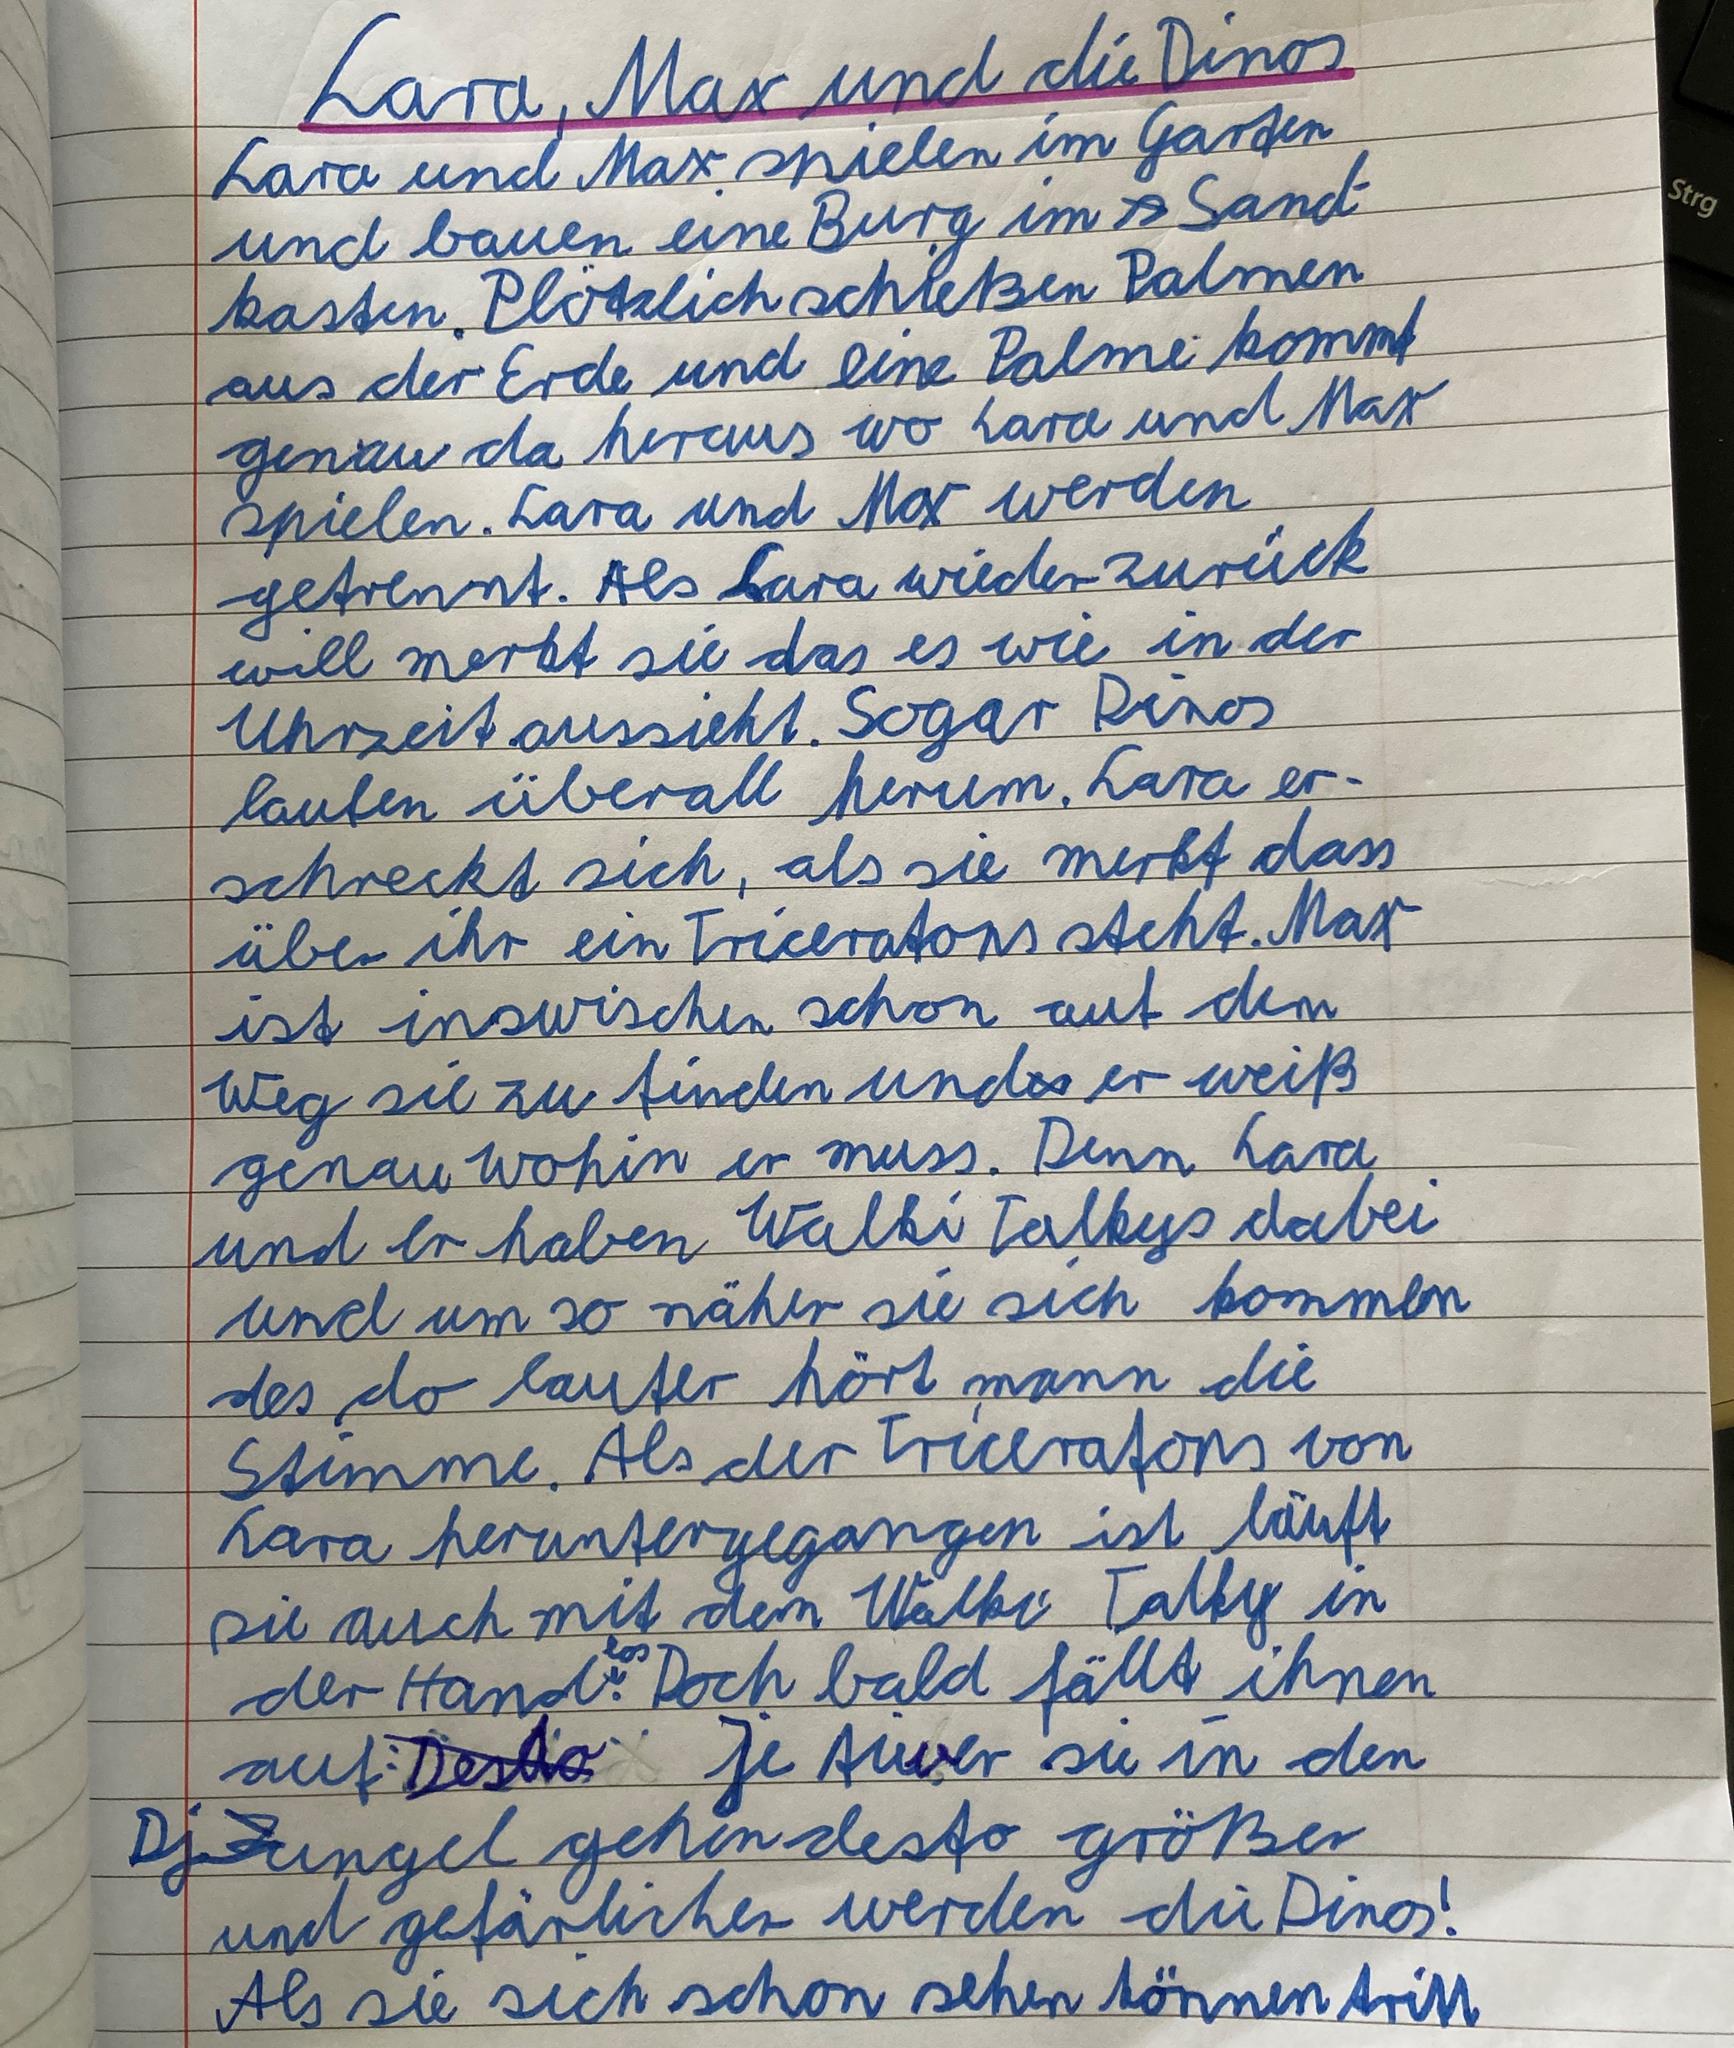 Lara, Max und die Dinos
Lara und Max spielen im Garten
und bauen eine Burg im Sand-
kasten. Plötzlich schießen Palmen
aus der Erde und eine Palme kommt
genau da heraus wo Lara und Max
spielen. Lara und Max werden
getrennt. Als Lara wieder zurück
will merkt sie das es wie in der
Uhrzeit aussieht. Sogar Dinos
laufen überall herum. Lara er-
schreckt sich, als sie merkt dass
über ihr ein Triceratops steht. Max
ist inswischen schon auf dem
Weg sie zu finden und er weiß
genau wohin er muss. Denn Lara
und er haben Walki Talkys dabei
und um so näher sie sich kommen
des do lauter hört mann die
Stimme. Als der Triceratops von
Lara heruntergegangen ist läuft
sie auch mit dem Walki Talky in
der Hand los. Doch bald fällt ihnen
auf: Desto Je tiefer sie in den
Djungel gehen desto größer
und gefärlicher werden die Dinos!
Als sie sich schon sehen können tritt
Strg